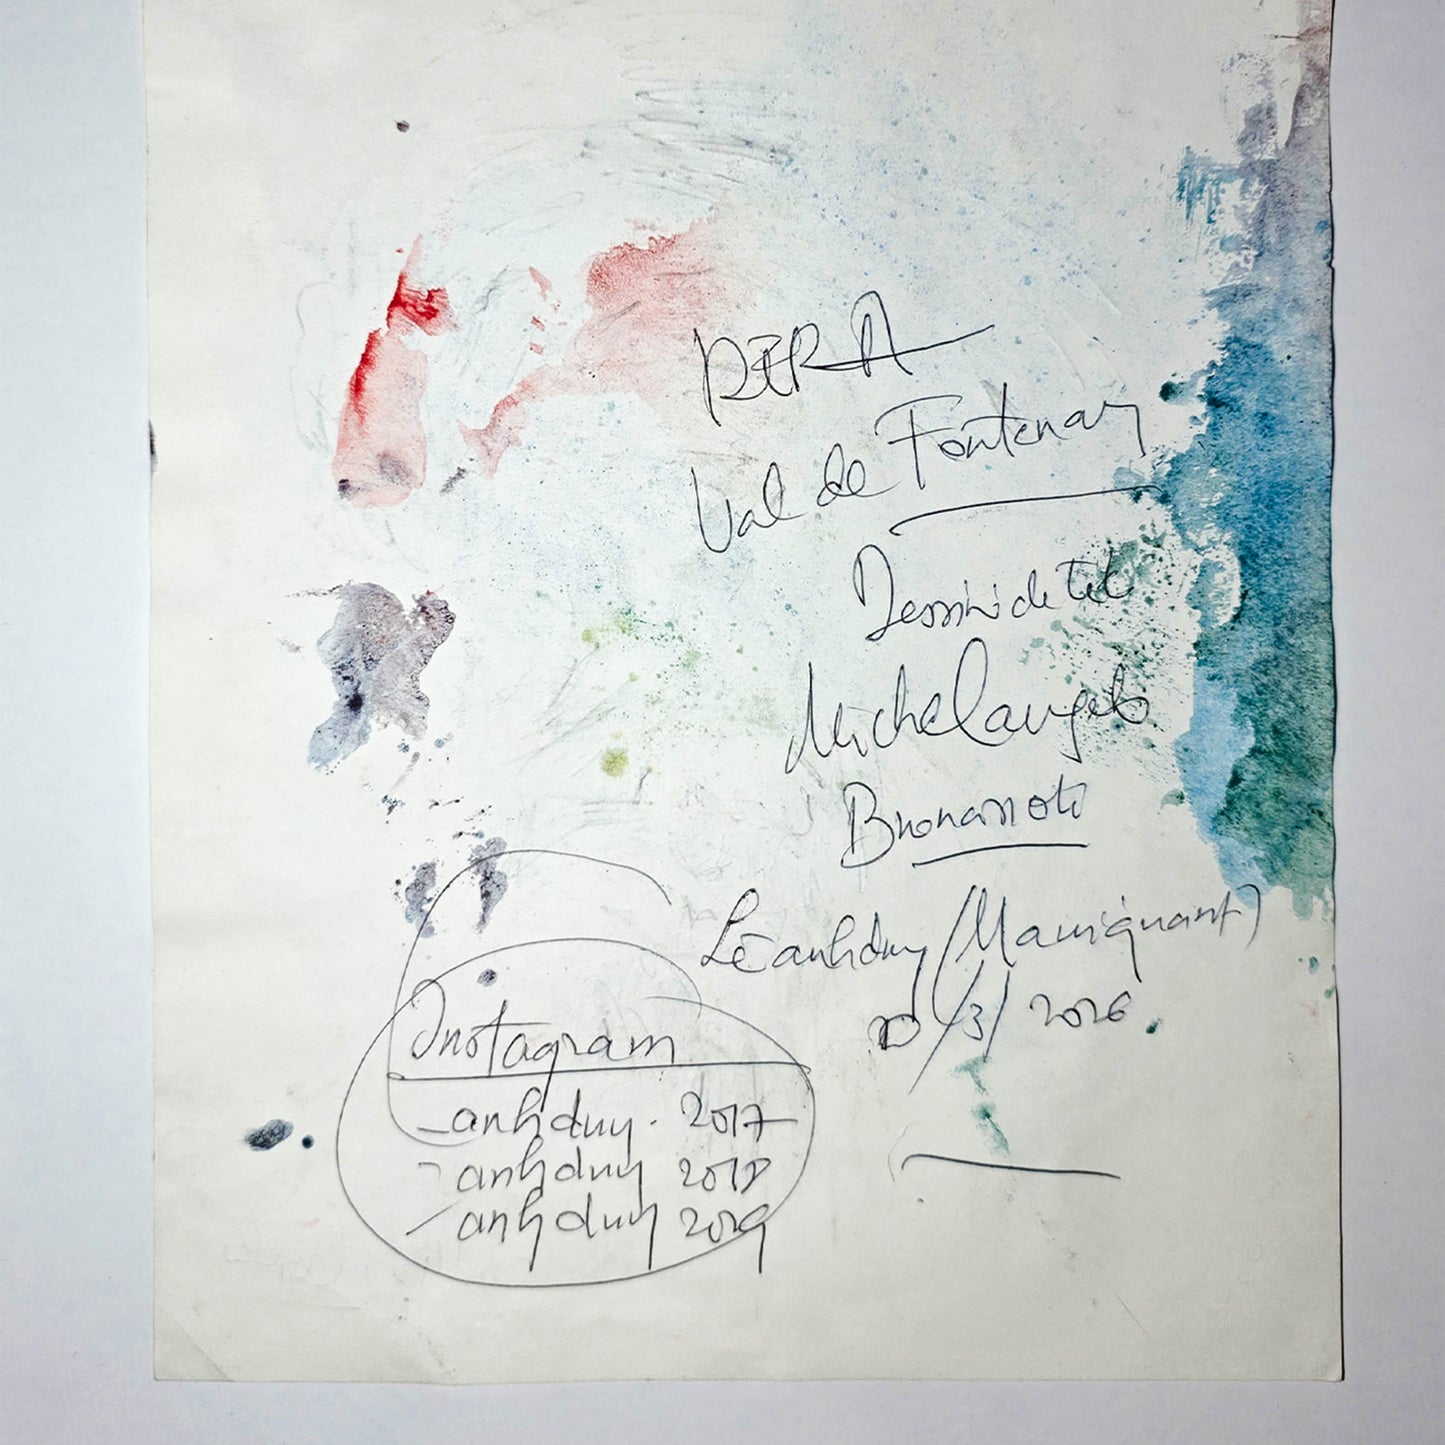 RER A
Val de Fontenay
Dessin de tet
Michelangelo
Buonarroti
Lê anhduy (Mauriquant)
10/3/2026
Instagram
_anhduy. 2017
- anhduy 2018
- anhduy 2019